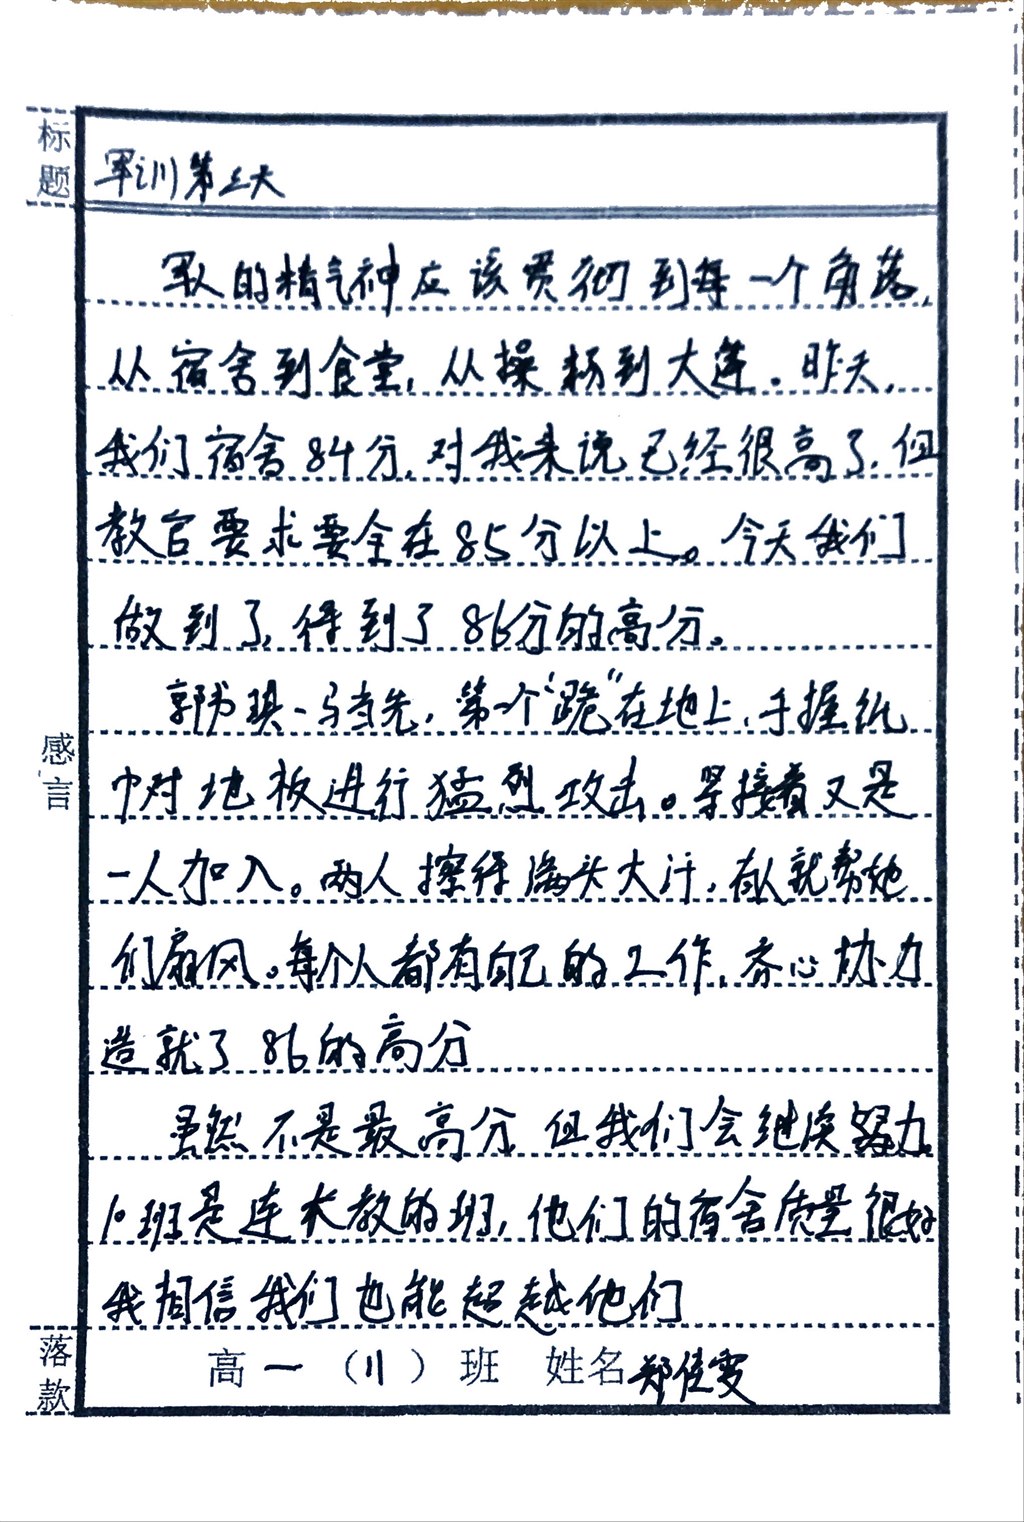 标题
军训第三天
军人的精气神应该贯彻到每一个角落,
从宿舍到食堂,从操场到大莲。昨天,
我们宿舍84分,对我来说已经很高了,但
教官要求要全在85分以上。今天我们
做到了,得到了86分的高分。
郭书琪一马当先,第一个“跪”在地上,手握纸
巾对地板进行猛烈攻击。紧接着又是
一人加入。两人擦得满头大汗,有人就帮她
们扇风。每个人都有自己的工作,齐心协力
造就了86的高分
感言
虽然不是最高分,但我们会继续努力,
10班是连长教的班,他们的宿舍质量很好
我相信我们也能超越他们
落款
高一(11)班 姓名郑佳雯